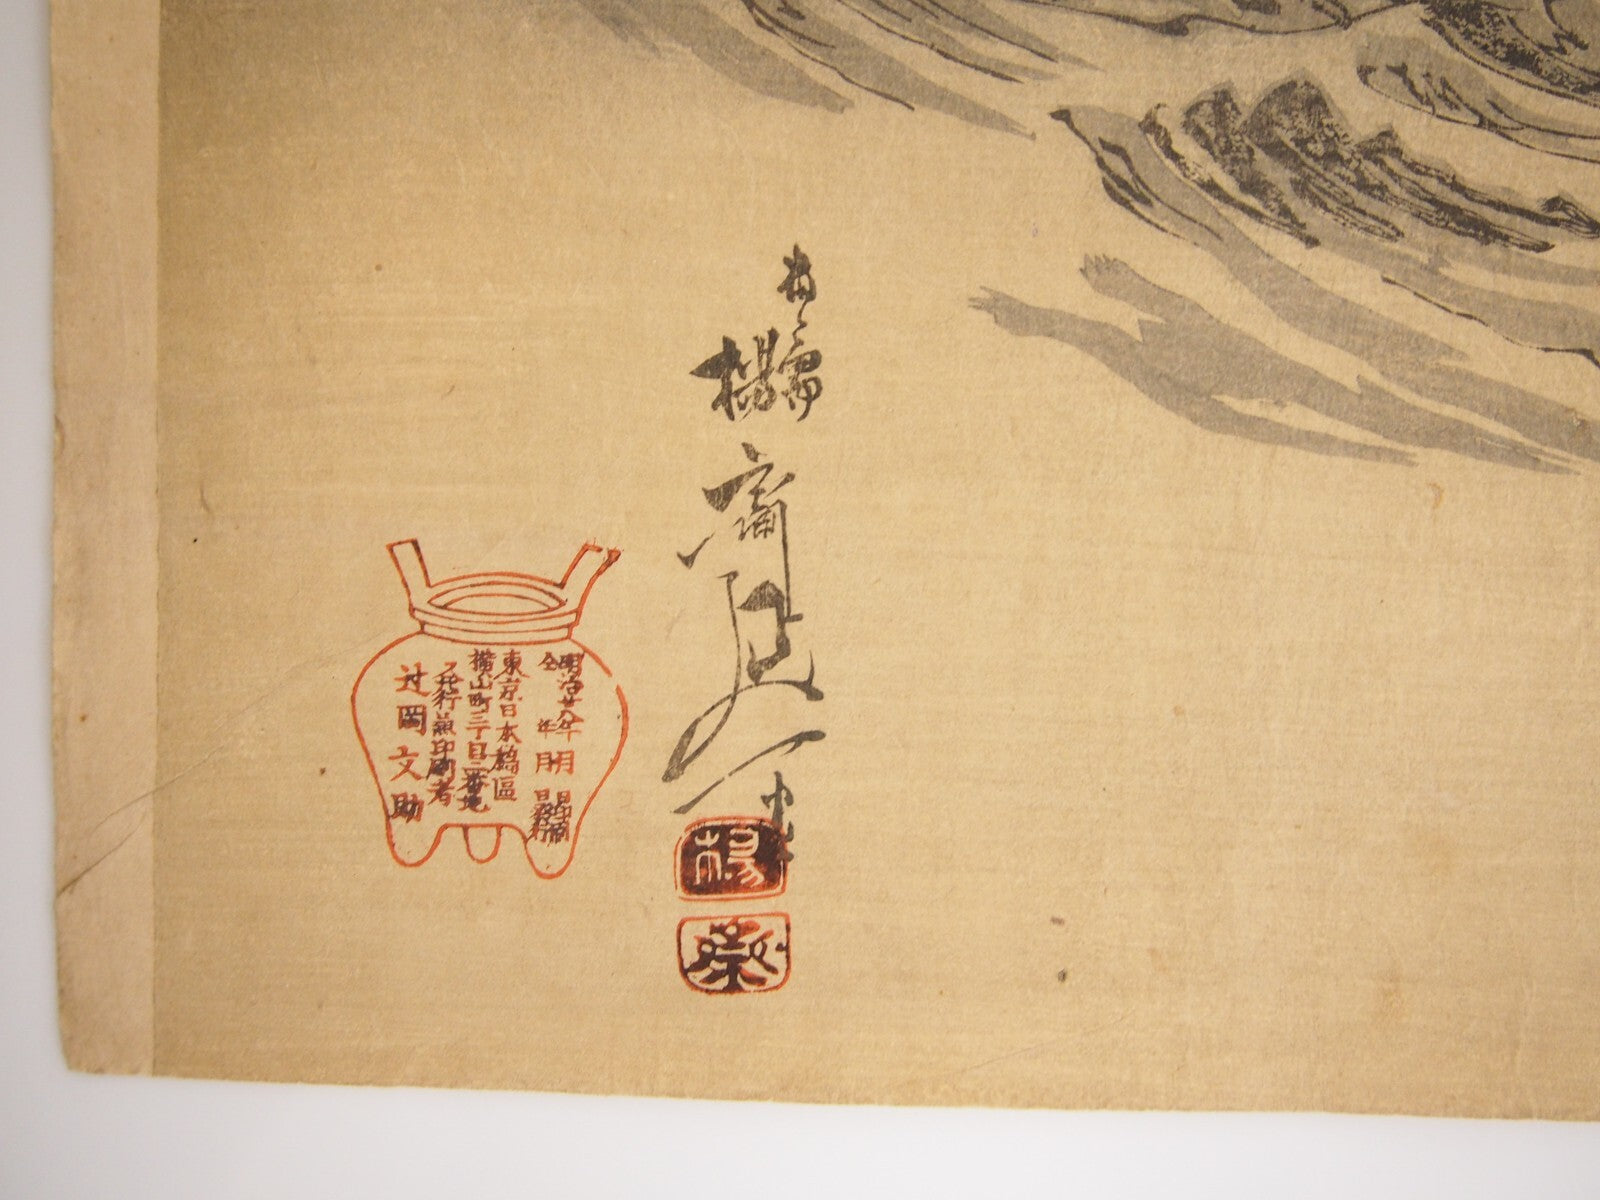 楊斎延一筆
楊
榮
明治廿八年 月 日印刷
仝 年 月 日發行
東京日本橋區
横山町三丁目二番地
発行兼印刷者
辻岡文助